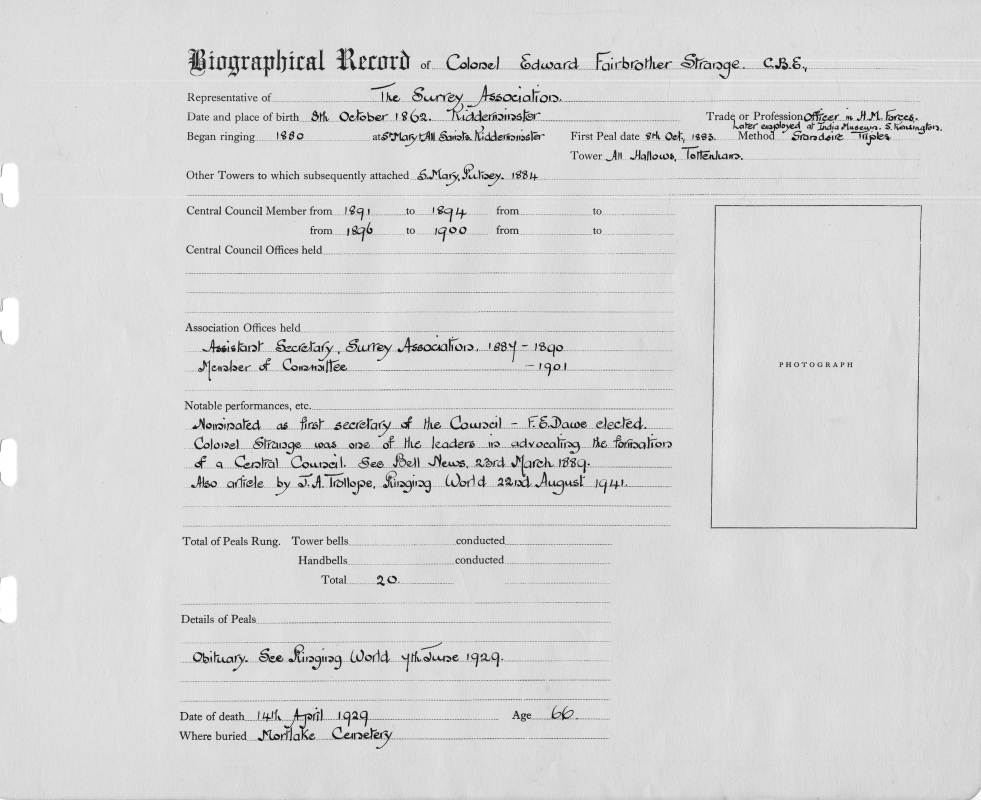 Biographical Record of Colonel Edward Fairbrother Strange. C.B.E.,
Representative of The Surrey Association.
Date and place of birth 8th October 1862. Kidderminster Trade or Profession Officer in H.M. Forces.
Later employed at India Museum. S. Kensington.
Began ringing 1880 at S. Mary & All Saints. Kidderminster First Peal date 8th Oct, 1883. Method Grandsire Triples
Tower All Hallows, Tottenham.
Other Towers to which subsequently attached S. Mary, Putney. 1884
Central Council Member from 1891 to 1894 from to
from 1896 to 1900 from to
Central Council Offices held
Association Offices held
Assistant Secretary, Surrey Association. 1887 - 1890
Member of Committee - 1901
PHOTOGRAPH
Notable performances, etc.
Nominated as first secretary of the Council - F.E. Dawe elected.
Colonel Strange was one of the leaders in advocating the formation
of a Central Council. See Bell News, 23rd March 1889.
Also article by J.A. Trollope, Ringing World 22nd August 1941.
Total of Peals Rung. Tower bells conducted
Handbells conducted
Total 20.
Details of Peals
Obituary. See Ringing World 7th June 1929.
Date of death 14th April 1929 Age 66.
Where buried Mortlake Cemetery